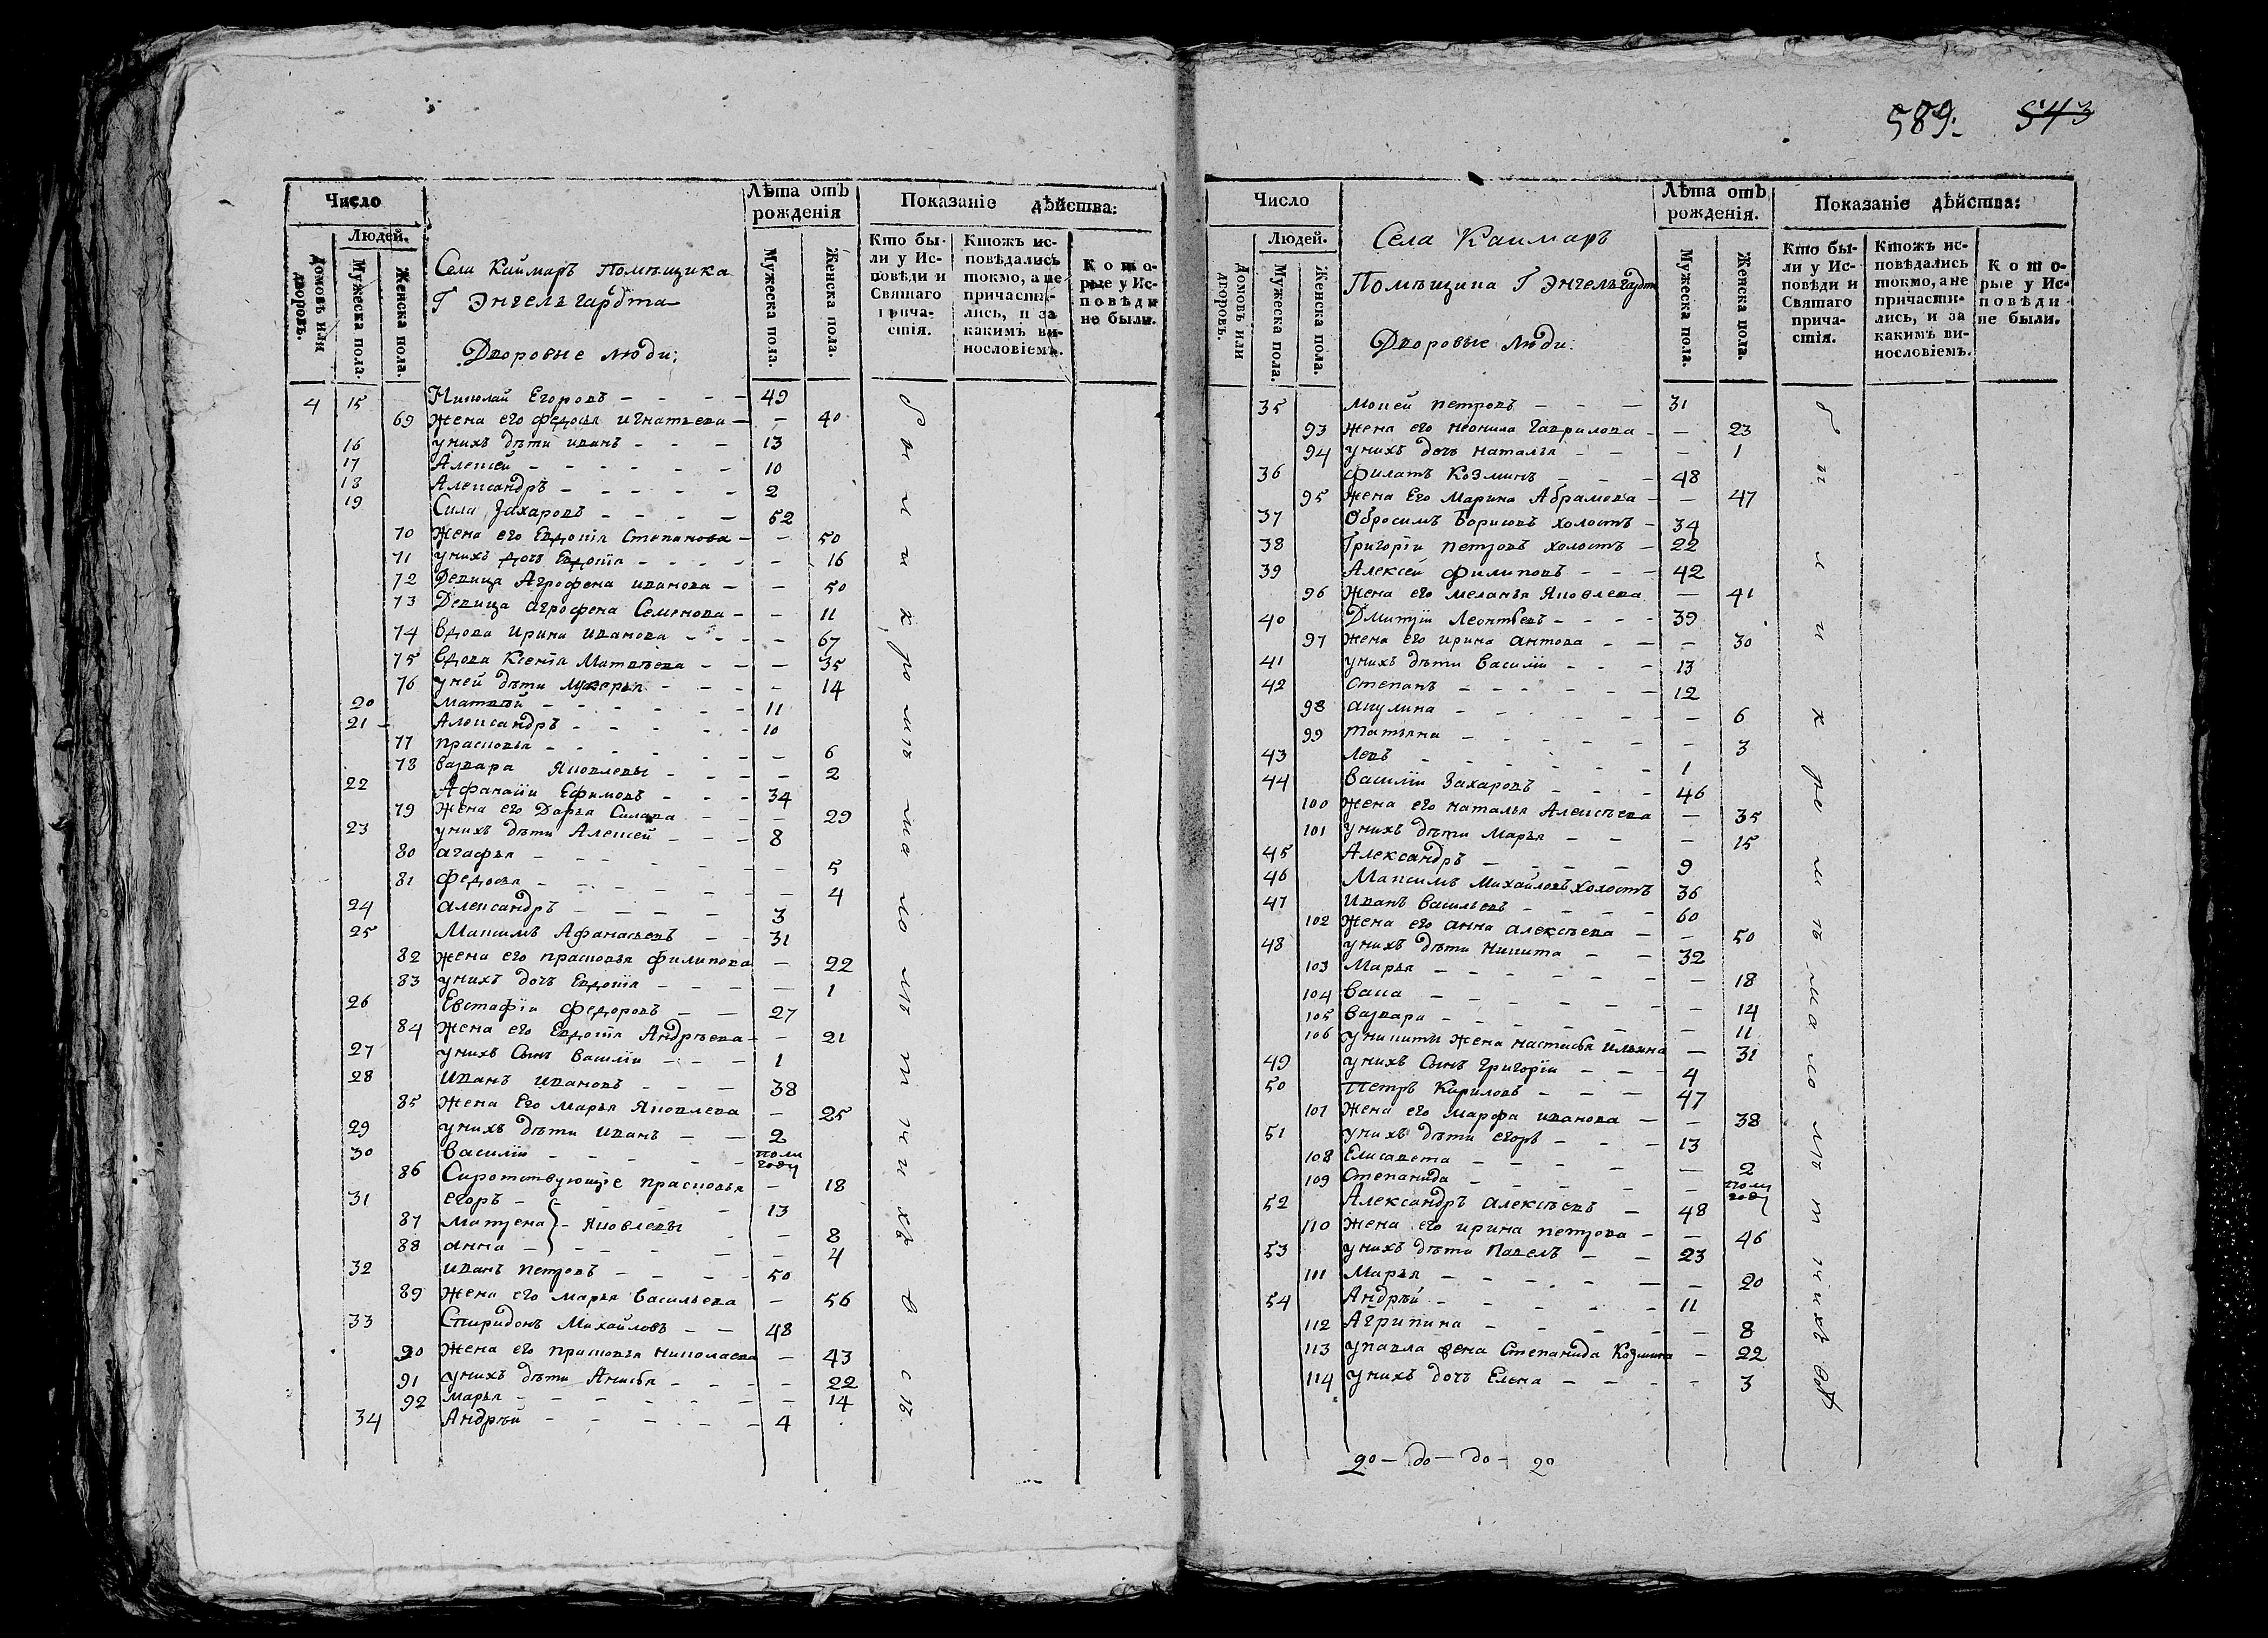 589. 543
Число
Людей.
Домовъ или дворовъ.
Мужеска пола.
Женска пола.
Села Каимаръ Помѣщика
Г Энгельгардта
Дворовые люди:
Лѣта отъ
рожденія
Мужеска пола.
Женска пола.
Показаніе дѣйства:
Кто бы-
ли у Ис-
повѣди и
Святаго
прича-
стія.
Ктожъ ис-
повѣдались
токмо, а не
причасти-
лись, и за
какимъ ви-
нословіемъ.
Кото-
рые у Ис-
повѣди
не были.
4 15 Николай Егоровъ 49
69 жена его федосья игнатьева 40
16 унихъ дѣти иванъ 13
17 Алексей 10
18 Александръ 2
19 Сила Захаровъ 52
70 жена его Евдокія Степанова 50
71 унихъ дочь Евдокія 16
72 Девица Агрофена иванова 50
73 Девица агрофена Семенова 11
74 вдова Ирина иванова 67
75 вдова Ксенія Матвѣева 35
76 уней дѣти лукерья 14
20 матвей 11
21 Александръ 10
77 прасковья 6
78 варвара Яковлевы 2
22 Афанасіи Ефимовъ 34
79 жена его Дарья Силава 29
23 унихъ дѣти Алексей 8
80 агафья 5
81 федосья 4
24 александръ 3
25 Максимъ Афанасьевъ 31
82 жена его прасковья филипова 22
83 унихъ дочь Евдокія 1
26 Евстафіи федоровъ 27
84 жена его Евдокія Андрѣева 21
27 унихъ сынъ василіи 1
28 Иванъ ивановъ 38
85 жена Его марья Яковлева 25
29 унихъ дѣти иванъ 2
30 василіи полугоду
86 Сиротствующіе прасковья 18
31 егоръ 13
87 матрена Яковлевы 8
88 анна 4
32 иванъ петровъ 50
89 жена его марья васильева 56
33 Спиридонъ Михайловъ 48
90 жена его прасковья николаева 43
91 унихъ дѣти Анисья 22
92 марья 14
34 Андрѣй 4
были и кромѣ насо мѣтчихъ всѣ
Число
Людей.
Домовъ или дворовъ.
Мужеска пола.
Женска пола.
Села Каимаръ
Помѣщика Г Энгельгардта
Дворовые люди:
Лѣта отъ
рожденія.
Мужеска пола.
Женска пола.
Показаніе дѣйства:
Кто бы-
ли у Ис-
повѣди и
Святаго
прича-
стія.
Ктожъ ис-
повѣдались
токмо, а не
причасти-
лись, и за
какимъ ви-
нословіемъ.
Кото-
рые у Ис-
повѣди
не были.
35 мокей петровъ 31
93 жена его неонила гаврилова 23
94 унихъ дочь наталья 1
36 филатъ Козминъ 48
95 жена Его Марина Абрамова 47
37 Обросимъ Борисовъ холостъ 34
38 Григоріи петровъ холостъ 22
39 Алексеи филиповъ 42
96 жена его меланья Яковлева 41
40 Дмитріи Леонтьевъ 39
97 жена его ирина антова 30
41 унихъ дѣти василіи 13
42 степанъ 12
98 акулина 6
99 татьяна 3
43 левъ 1
44 василіи Захаровъ 46
100 жена его наталья Алексѣева 35
101 унихъ дѣти Марья 15
45 Александръ 9
46 Максимъ михайловъ холостъ 36
47 иванъ васильевъ 60
102 жена его анна алексѣева 50
48 унихъ дѣти никита 32
103 Марья 18
104 васа 14
105 варвара 11
106 уникиты жена настасья ильина 31
49 унихъ сынъ григоріи 4
50 Петръ Кириловъ 47
107 жена его марфа иванова 38
51 унихъ дѣти егоръ 13
108 Елисавета 2
109 Степанида полугоду
52 Александръ алексѣевъ 48
110 жена его ирина петрова 46
53 унихъ дѣти павелъ 23
111 Марья 20
54 Андрѣй 11
112 Агрипина 8
113 упавла жена Степанида Козмина 22
114 унихъ дочь Елена 3
20 — до — до — 20